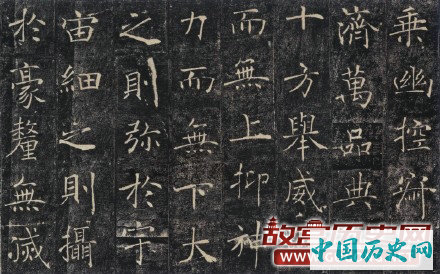 乘幽控寂
濟萬品典
十方舉威
而無上抑神
力而無下大
之則弥於宇
宙細之則攝
於豪釐無滅
故宫历史网
中国历史网